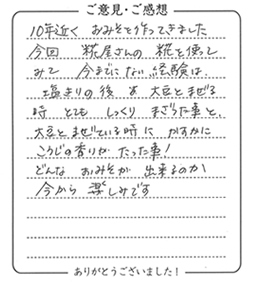 ご意見・ご感想
10年近く おみそを作ってきました
今回 糀屋さんの 糀を使って
みて 今までにない 経験は、
塩きりの後 大豆とまぜる
時 とても しっくり まざった事と、
大豆とまぜている時に かすかに
こうじの香りが たった事!
どんな おみそが 出来るのか
今から 楽しみです
ありがとうございました!